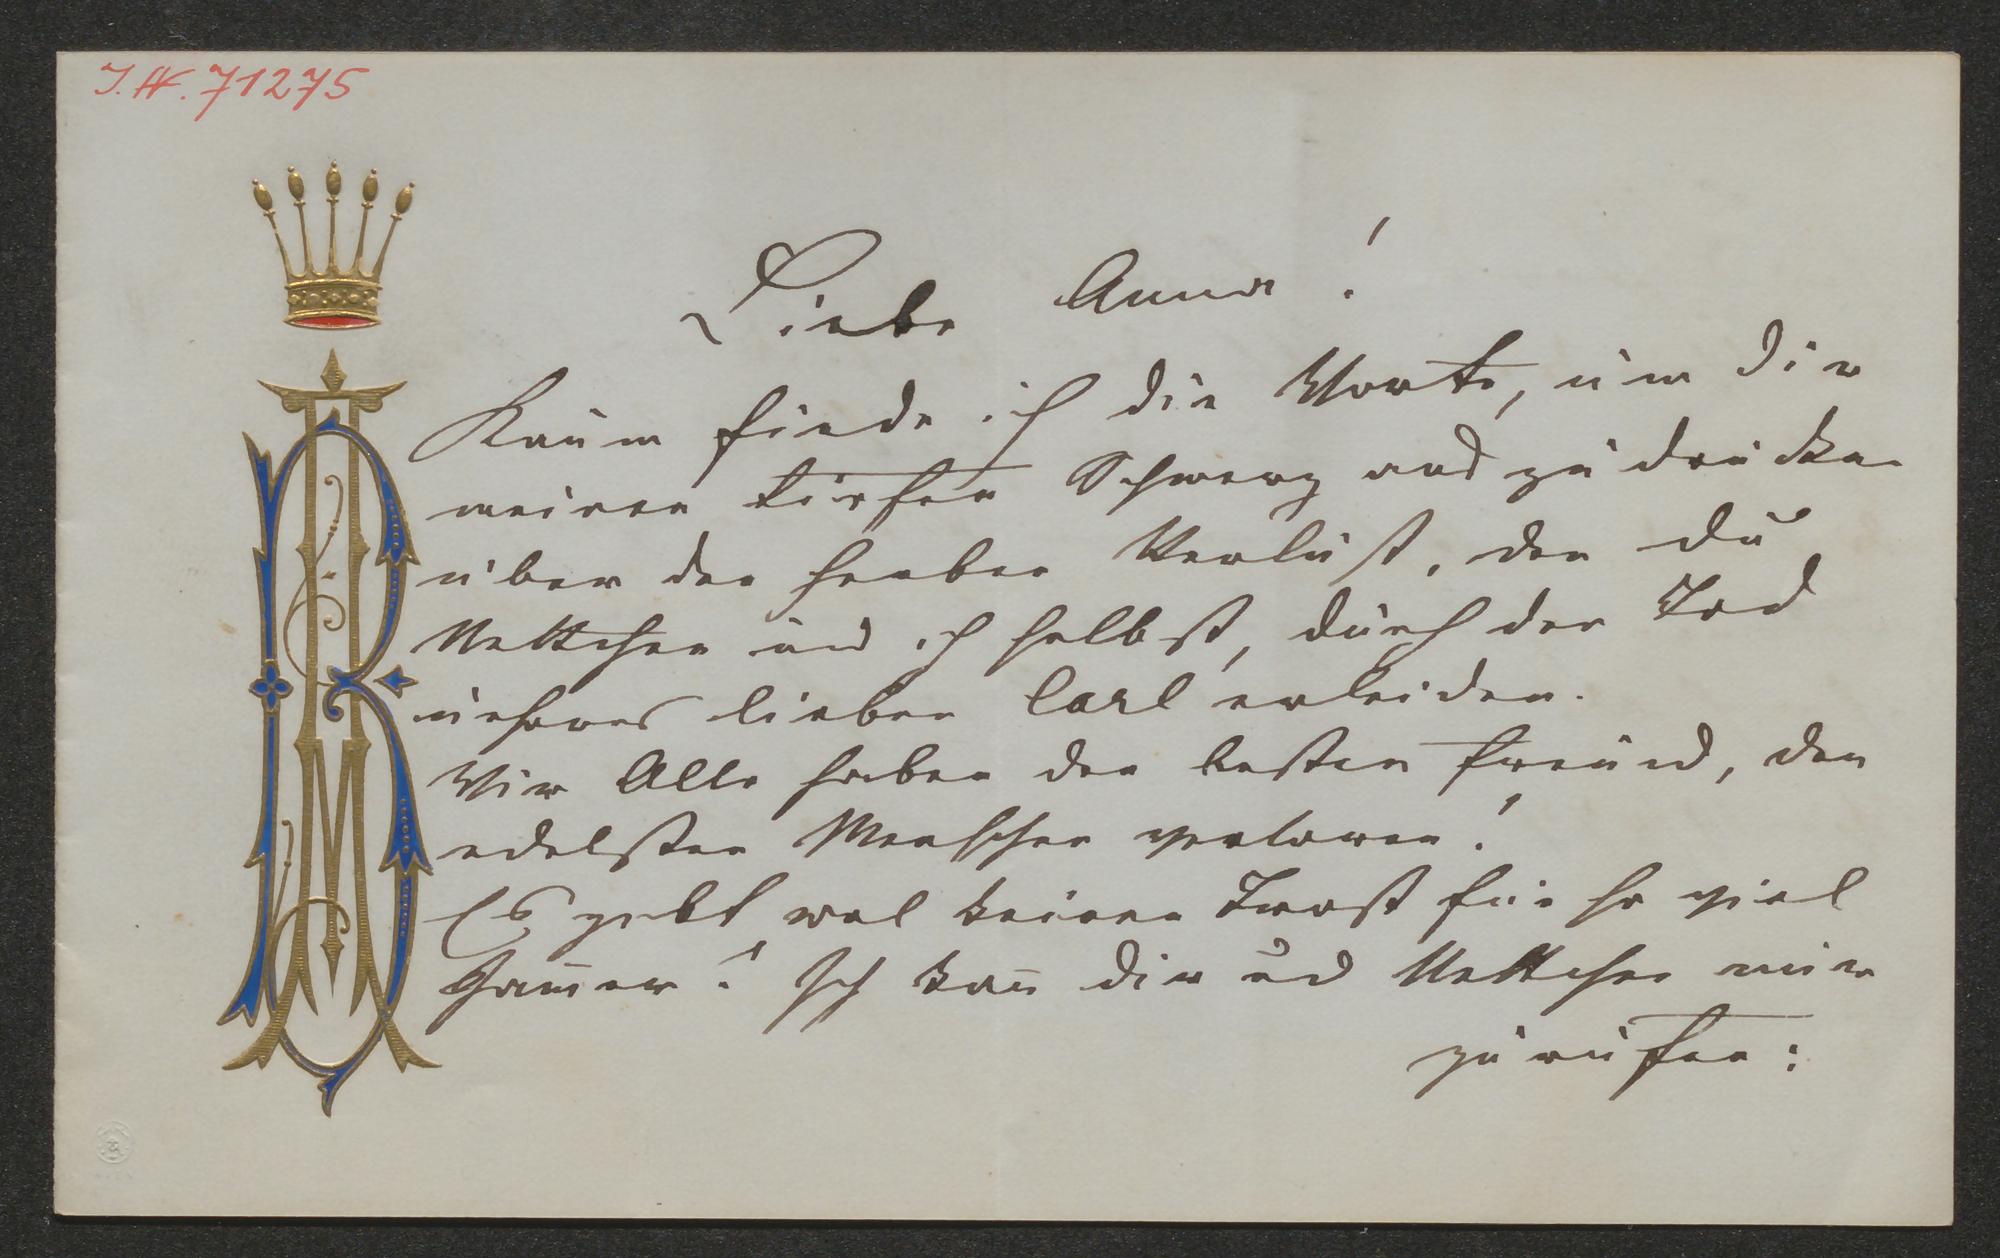 J. N. 71275
Liebe Anna!
Kaum finde ich die Worte, um Dir
meinen tiefen Schmerz aus zu drücken
über den herben Verlust, den Du
Nettchen und ich selbst, durch den Tod
unseres lieben Carl erleiden.
Wir Alle haben den besten Freund, den
edelsten Menschen verloren!
Es gebt wol keinen Trost für so viel
Jam̅er! Ich kan̅ Dir und Nettchen nur
zurufen: